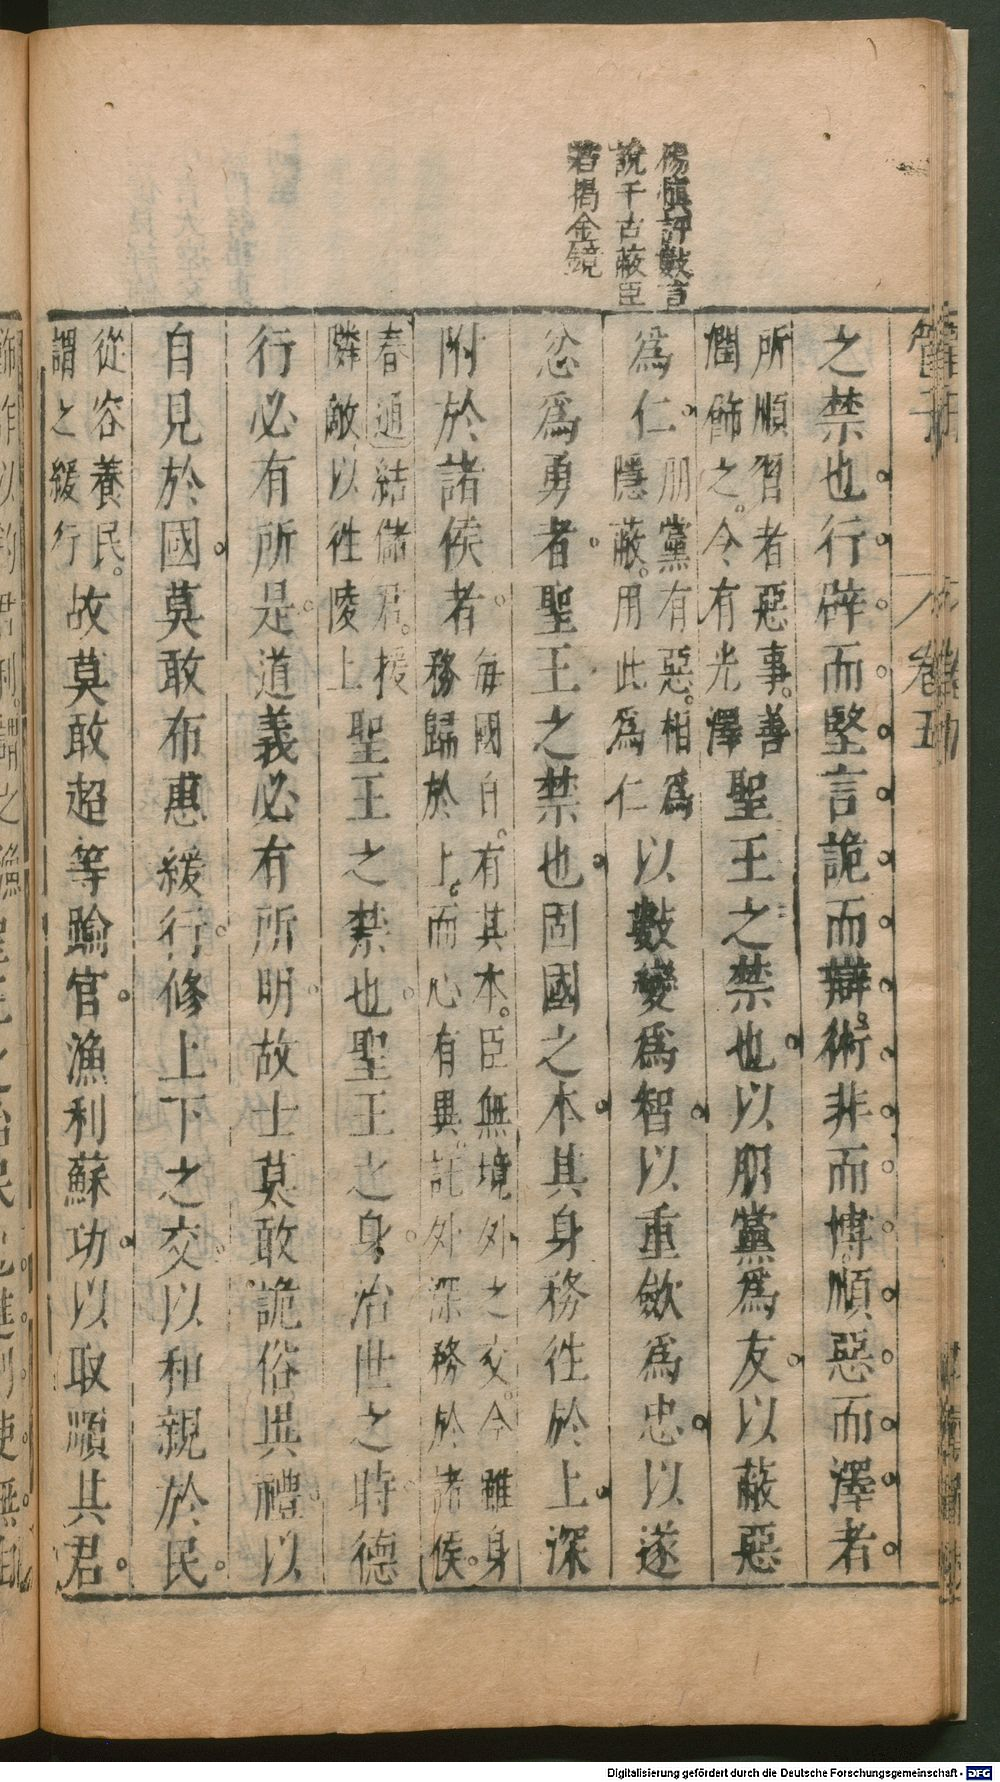 楊慎評數言
說千古蔽臣
若揭金鏡
管子
卷五
之禁也行辟而堅言詭而辯術非而博順惡而澤者
所順習者惡事善
潤飾之令有光澤
聖王之禁也以朋黨為友以蔽惡
為仁
朋黨有惡相為
隱蔽用此為仁
以數變為智以重斂為忠以遂
忿為勇者聖王之禁也固國之本其身務往於上深
附於諸侯者
每國自有其本臣無境外之交今雖身
務歸於上而心有異託外深務於諸侯
春通結儲君援
隣敵以往陵上
聖王之禁也聖王之身治世之時德
行必有所是道義必有所明故士莫敢詭俗異禮以
自見於國莫敢布惠緩行修上下之交以和親於民
從容養民
謂之緩行
故莫敢超等踰官漁利蘇功以取順其君
Digitalisierung gefördert durch die Deutsche Forschungsgemeinschaft - DFG